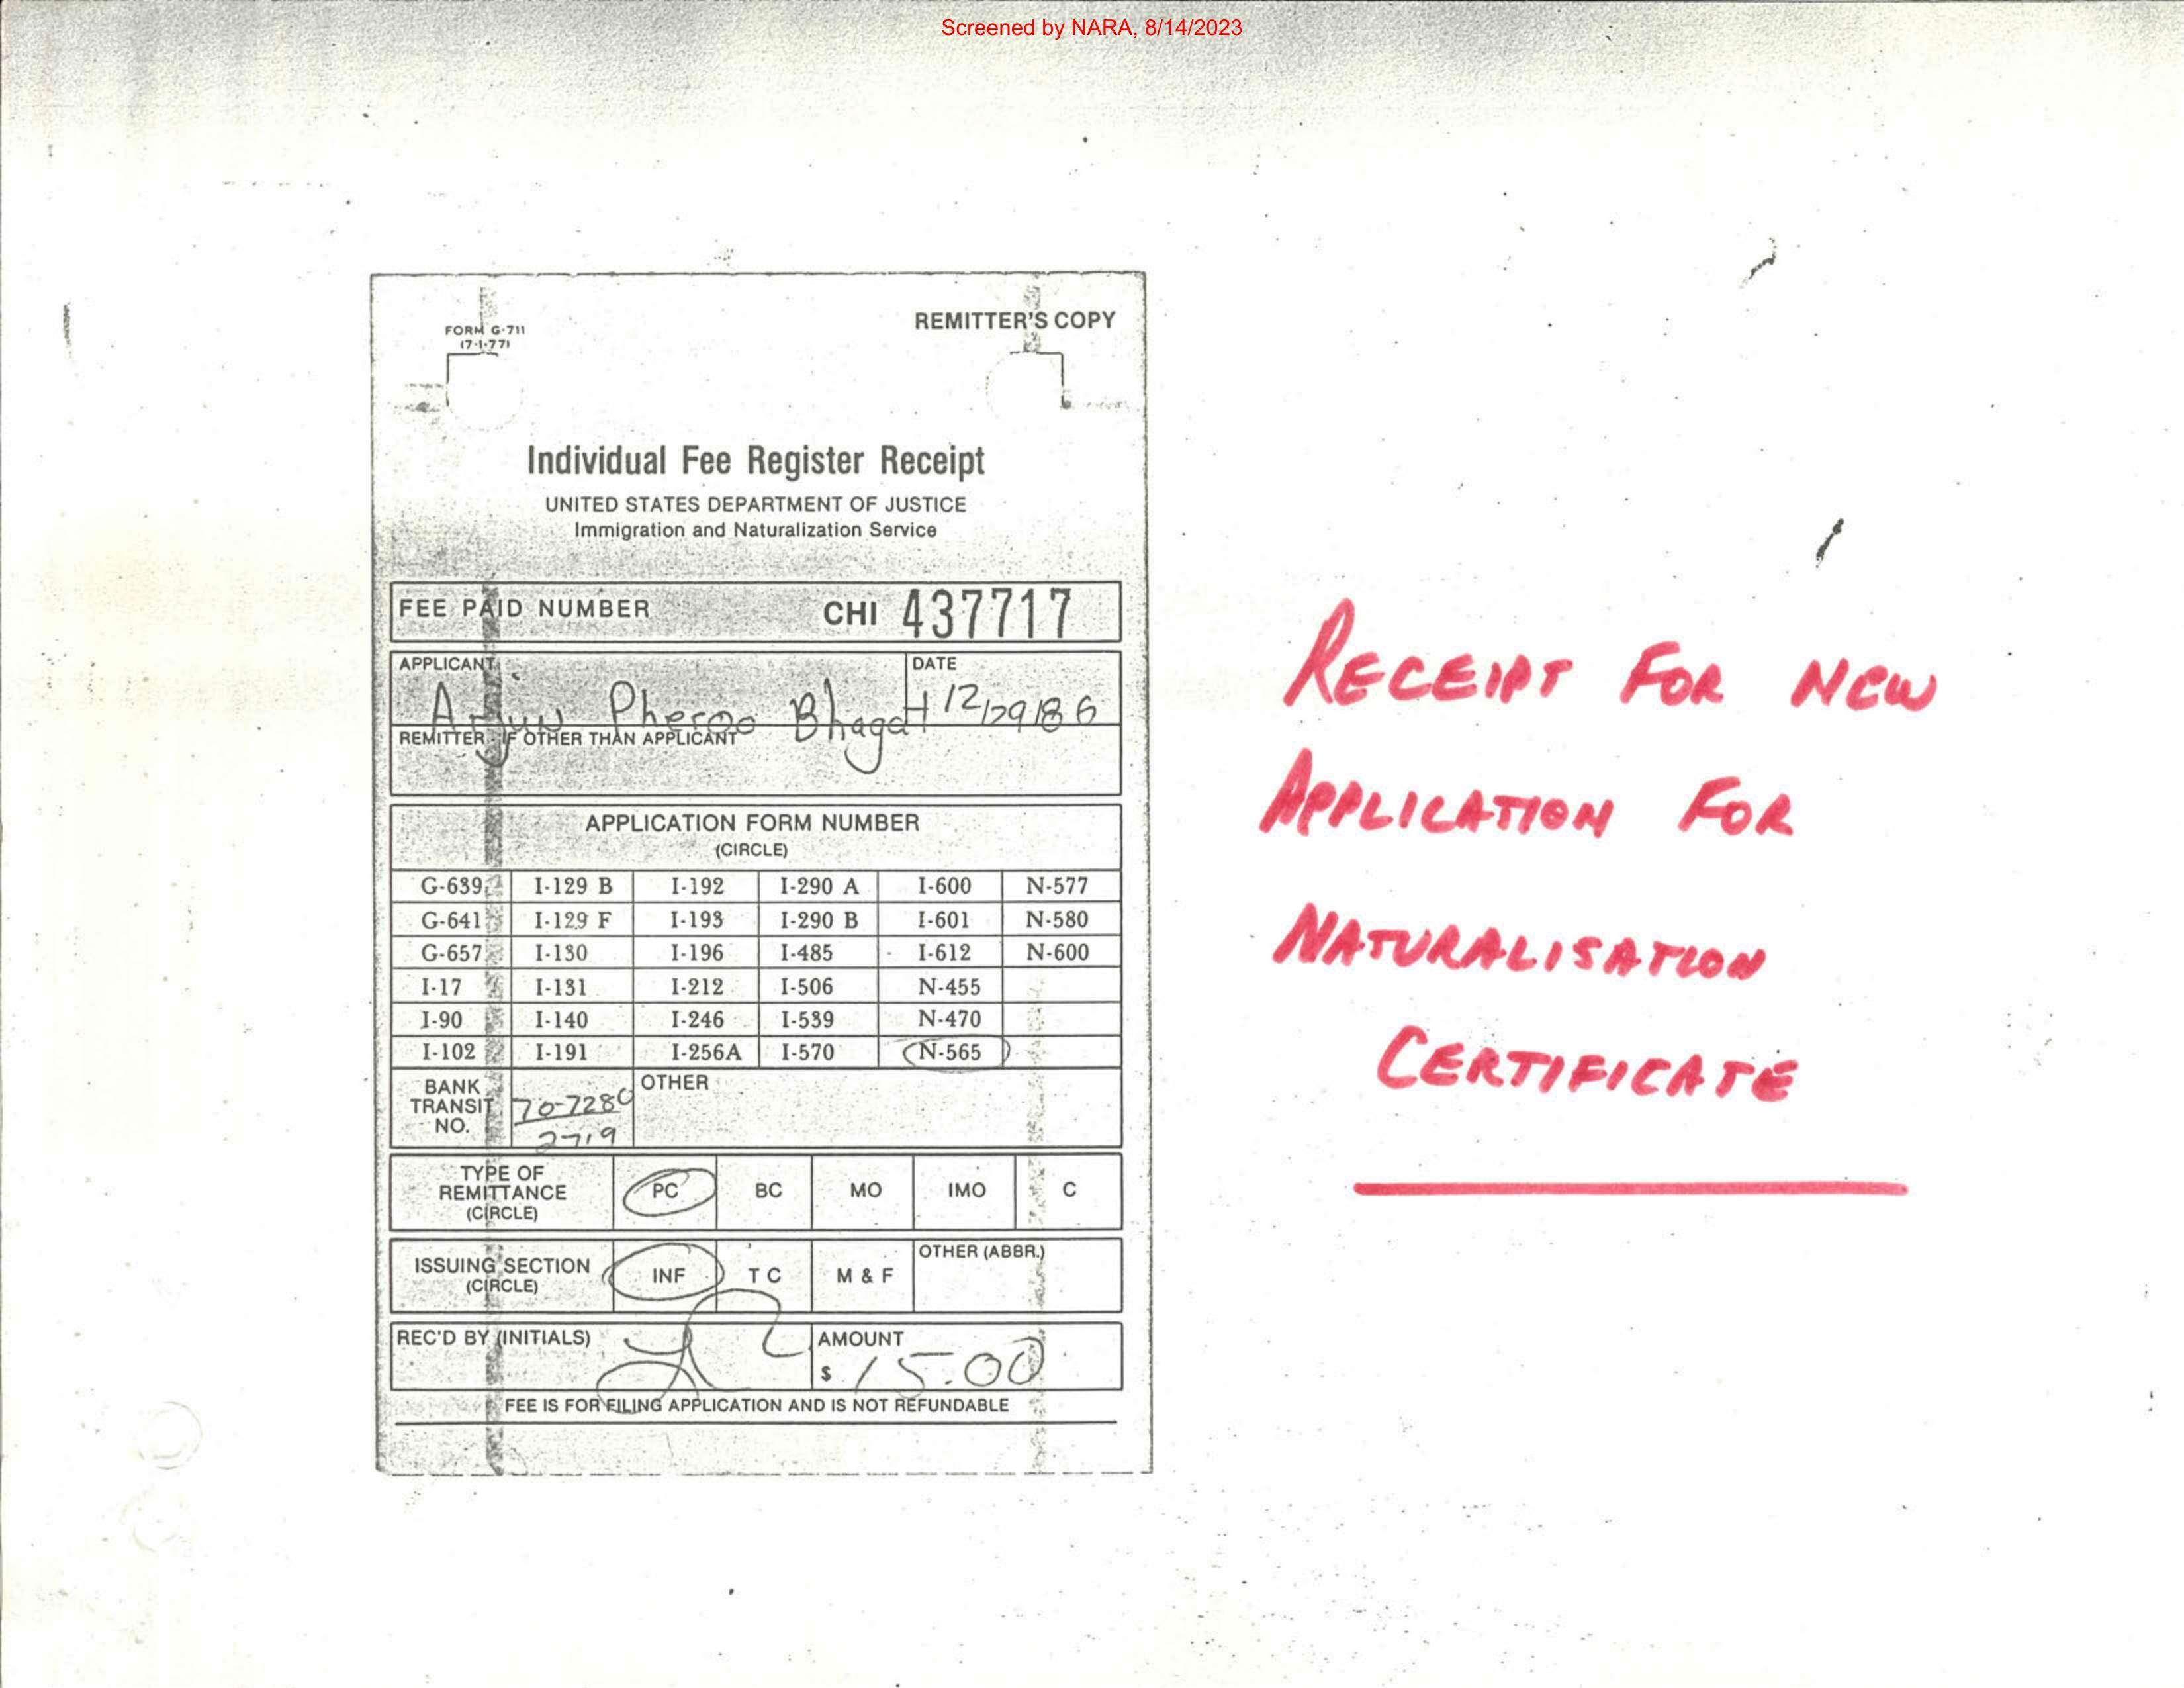 Screened by NARA, 8/14/2023
FORM G-711
(7-1-77)
REMITTER'S COPY
Individual Fee Register Receipt
UNITED STATES DEPARTMENT OF JUSTICE
Immigration and Naturalization Service
FEE PAID NUMBER CHI 437717
APPLICANT DATE
Arjun Pheroo Bhagat 12/29/86
REMITTER - IF OTHER THAN APPLICANT
APPLICATION FORM NUMBER
(CIRCLE)
G-639 I-129 B I-192 I-290 A I-600 N-577
G-641 I-129 F I-193 I-290 B I-601 N-580
G-657 I-130 I-196 I-485 I-612 N-600
I-17 I-131 I-212 I-506 N-455
I-90 I-140 I-246 I-539 N-470
I-102 I-191 I-256A I-570 N-565
BANK TRANSIT NO. 70-7280 2719 OTHER
TYPE OF REMITTANCE (CIRCLE) PC BC MO IMO C
ISSUING SECTION (CIRCLE) INF T C M & F OTHER (ABBR.)
REC'D BY (INITIALS) AMOUNT
$ 15.00
FEE IS FOR FILING APPLICATION AND IS NOT REFUNDABLE
RECEIPT FOR NEW
APPLICATION FOR
NATURALISATION
CERTIFICATE